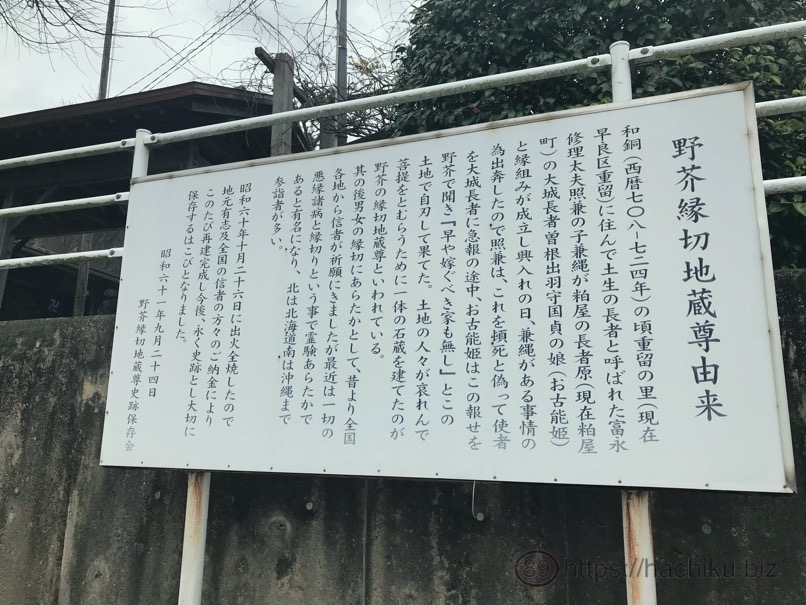 野芥縁切地蔵尊由来
和銅(西暦七〇八〜七二四年)の頃重留の里(現在
早良区重留)に住んで土生の長者と呼ばれた富永
修理太夫照兼の子兼縄が粕屋の長者原(現在粕屋
町)の大城長者曽根出羽守国貞の娘(お古能姫)
と縁組が成立し興入れの日、兼縄がある事情の
為出奔したので照兼は、これを頓死と偽って使者
を大城長者に急報の途中、お古能姫はこの報せを
野芥で聞き「早や嫁ぐべき家も無し」とこの
土地で自刃して果てた。土地の人々が哀れんで
菩提をとむらうために一体の石蔵を建てたのが
野芥の縁切地蔵尊といわれている。
其の後男女の縁切にあらたかとして、昔より全国
各地から信者が祈願にきましたが最近は一切の
悪縁諸病と縁切りという事で霊験あらたかで
あると有名になり、北は北海道南は沖縄まで
参詣者が多い。
昭和六十年十月二十六日に出火全焼したので
地元有志及全国の信者の方々のご納金により
このたび再建完成し今後、永く史跡とし大切に
保存するはこびとなりました。
昭和六十一年九月二十四日
野芥縁切地蔵尊史跡保存会
89 https://hachiku.biz